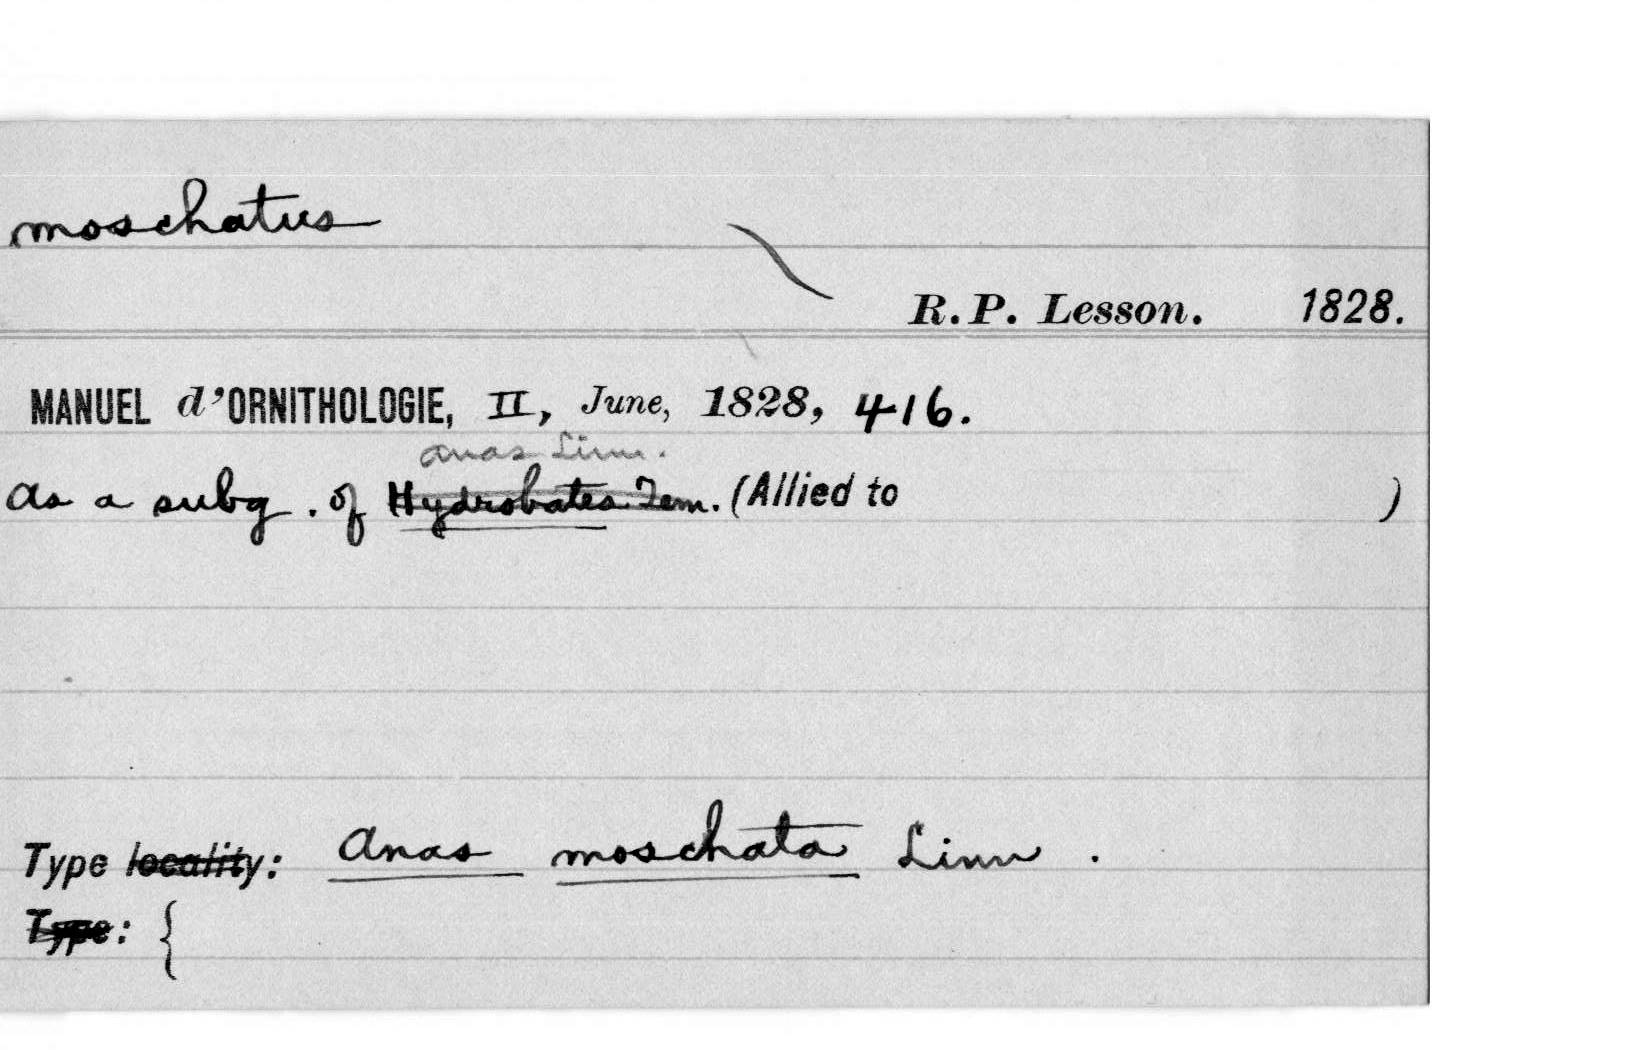 moschatus
R.P. Lesson. 1828.
MANUEL d'ORNITHOLOGIE, II, June, 1828, 416.
Anas Linn.
As a subg. of Hydrobates Tem. (Allied to )
Type locality: Anas moschata Linn.
Type: {